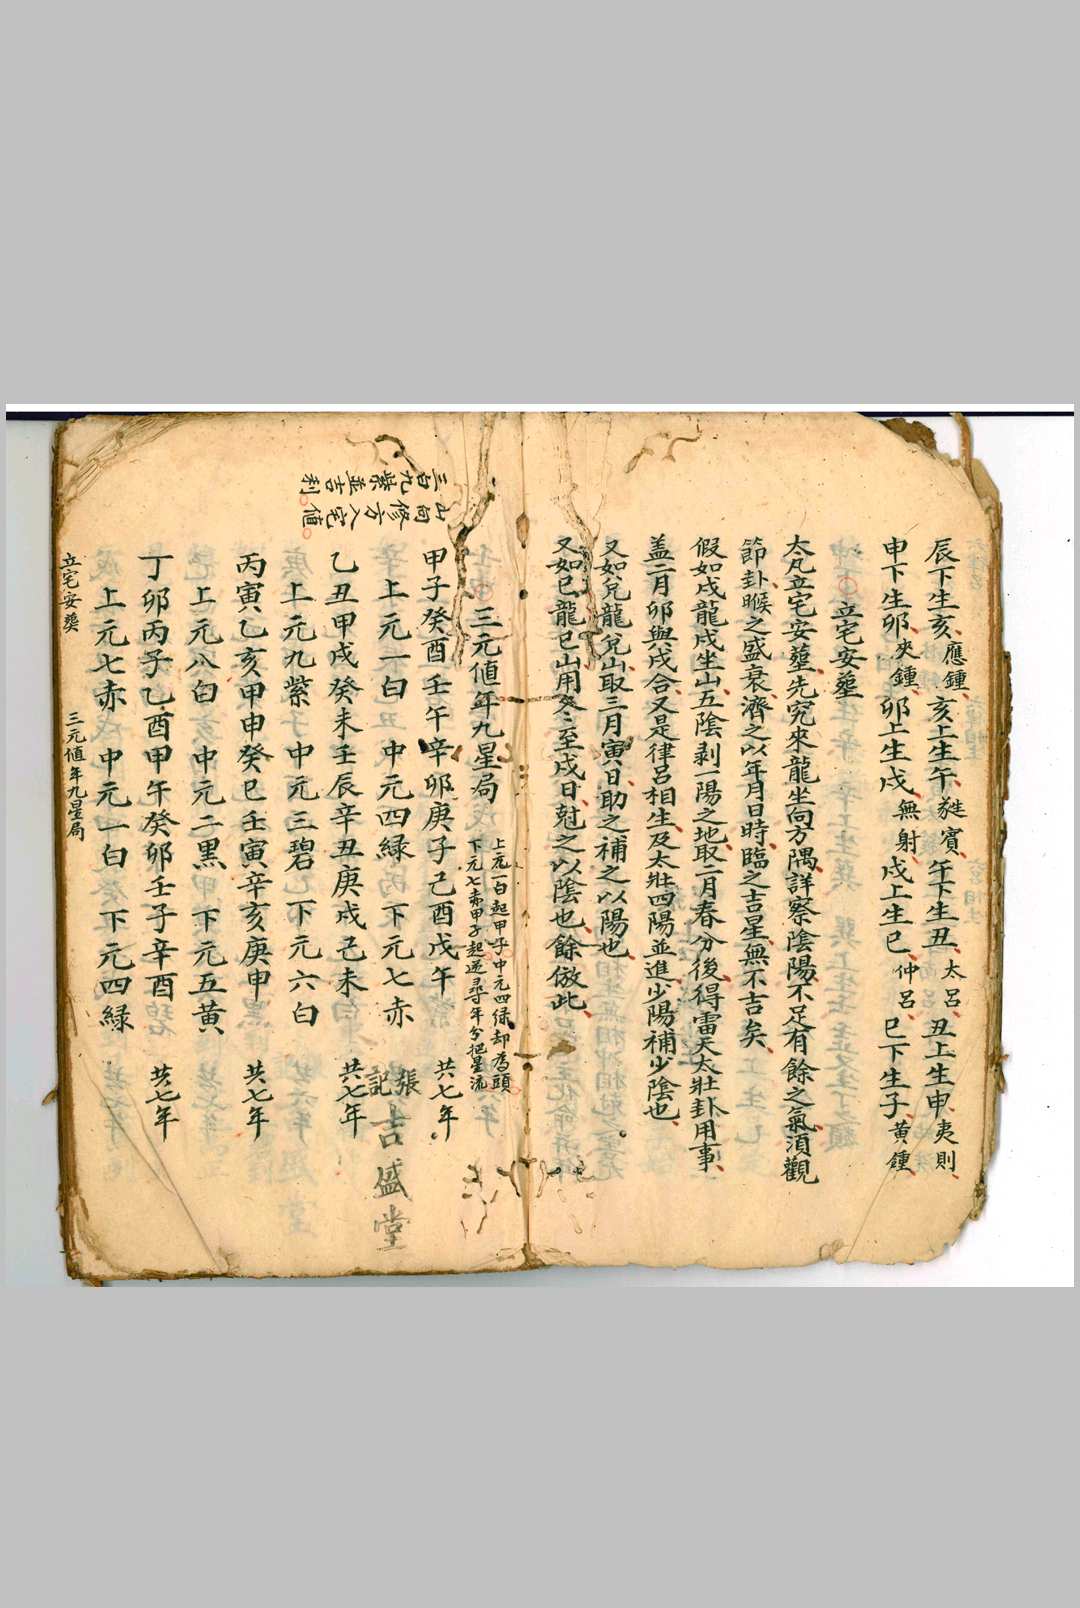 辰下生亥 應鍾 亥上生午 蕤賓 午下生丑 太呂 丑上生申 夷則
申下生卯 夾鍾 卯上生戌 無射 戌上生巳 仲呂 巳下生子 黃鍾
立宅安塟
太凡立宅安塟先究來龍坐向方隅詳察陰陽不足有餘之氣湏觀
節卦𠋫之盛衰濟之以年月日時臨之吉星無不吉矣
假如戌龍戌坐山五陰剥一陽之地取二月春分後得雷天太壯卦用事
盖二月卯與戌合又是律呂相生及太壯四陽並進少陽補少陰也
又如兌龍兌山取三月寅日助之補之以陽也
又如巳龍巳山用冬至戌日尅之以陰也餘倣此
三元值年九星局
上元一白起甲子中元四绿却為頭
下元七赤甲子起逆尋年分把星流
甲子癸酉壬午辛卯庚子己酉戊午 共七年
上元一白 中元四緑 下元七赤
張記吉盛堂
乙丑甲戌癸未壬辰辛丑庚戌己未 共七年
上元九紫 中元三碧 下元六白
丙寅乙亥甲申癸巳壬寅辛亥庚申 共七年
上元八白 中元二黑 下元五黃
丁卯丙子乙酉甲午癸卯壬子辛酉 共七年
上元七赤 中元一白 下元四緑
山向修方入宅值
三白九紫並吉利
立宅安塟 三元值年九星局